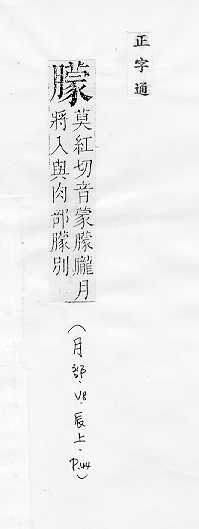 正字通
朦
莫紅切音蒙朦朧月
將入與肉部朦別
(月部.V8.辰上.P.44)